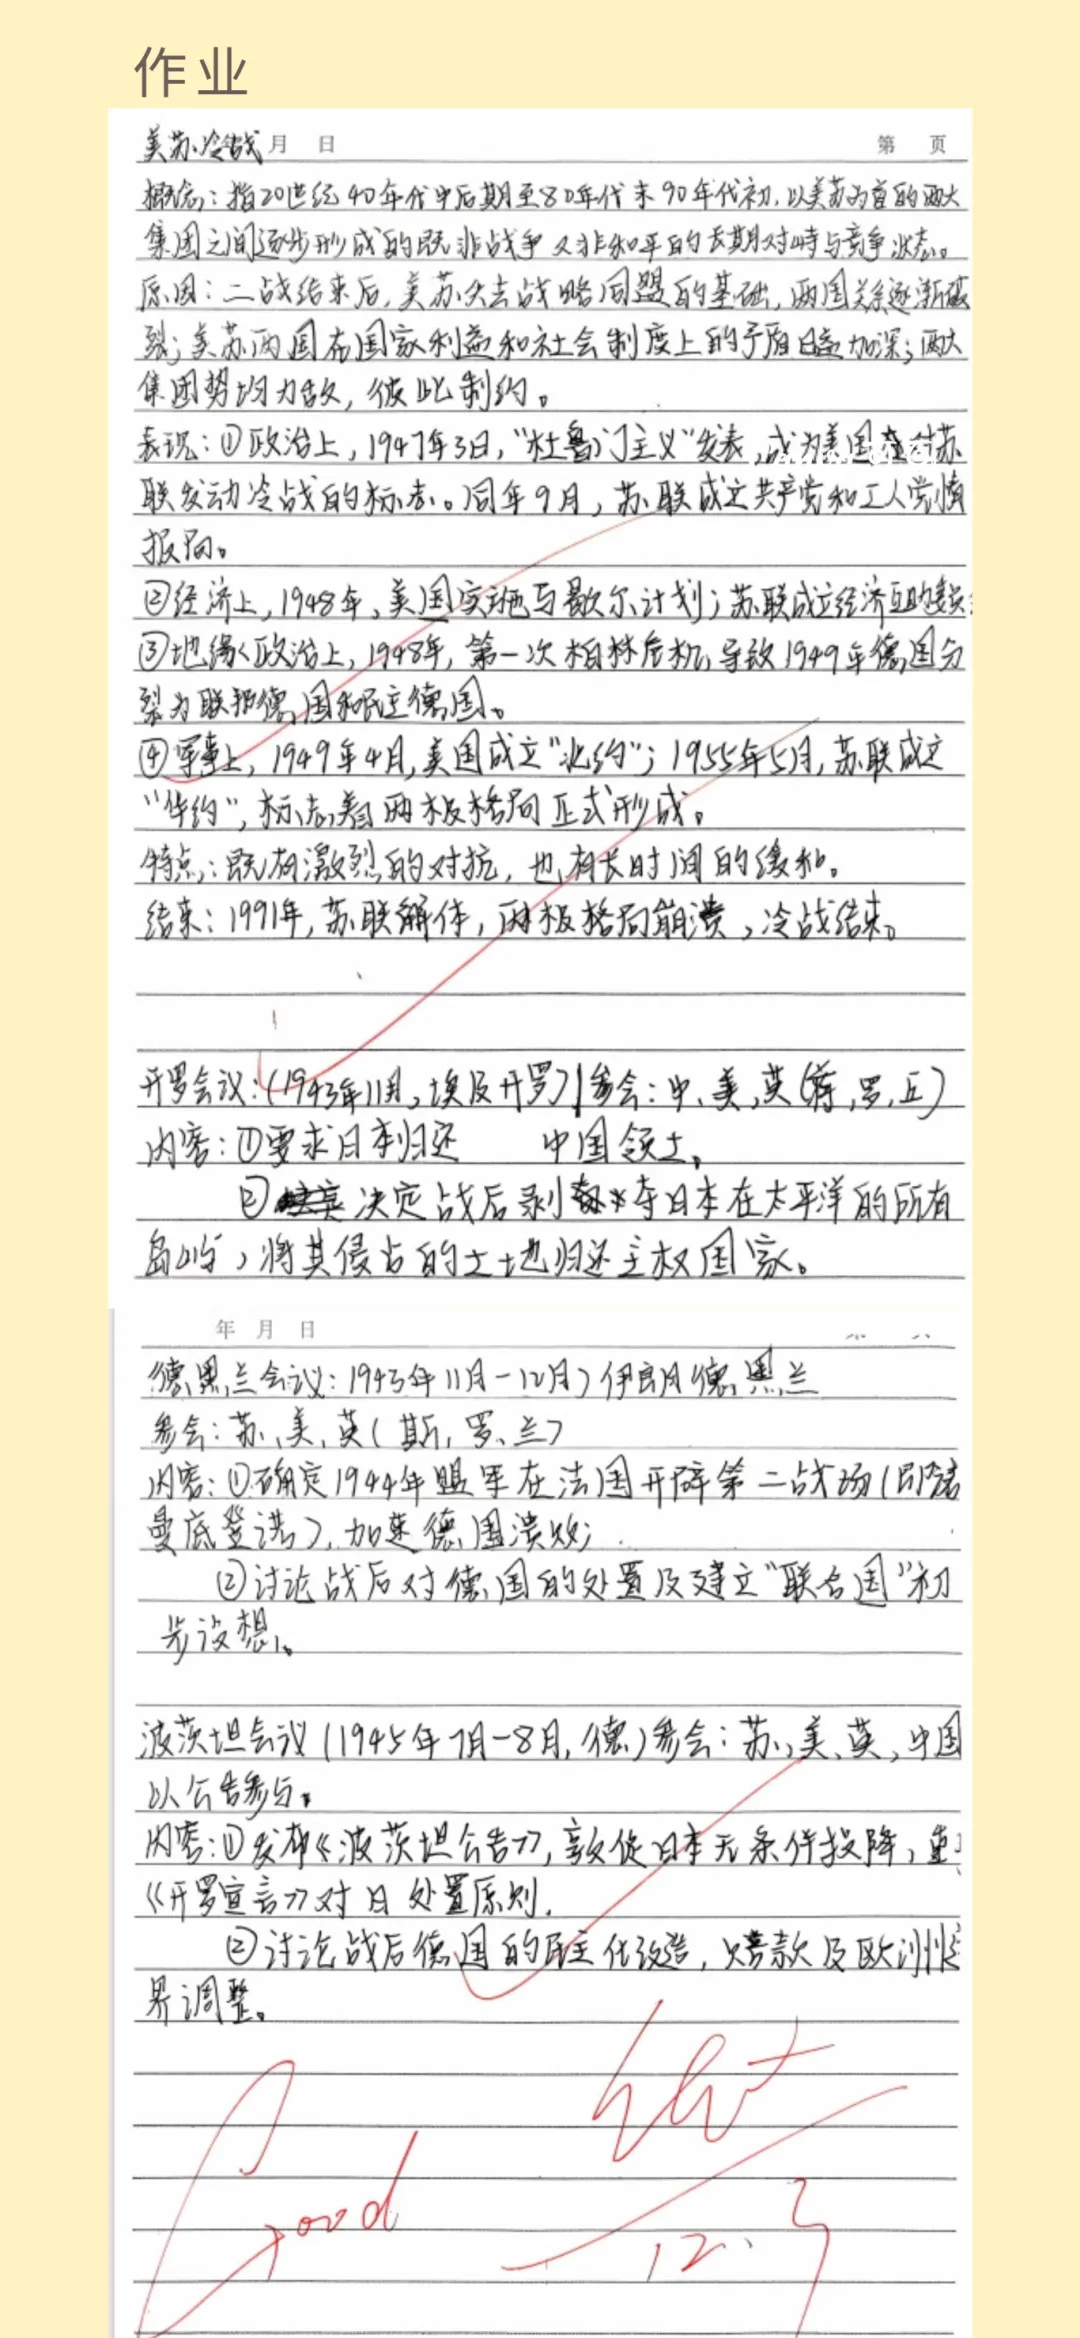 作业
美苏冷战 月 日 第 页
概念：指20世纪40年代中后期至80年代末90年代初，以美苏为首的两大
集团之间逐步形成的既非战争又非和平的长期对峙与竞争状态。
原因：二战结束后，美苏失去战略同盟的基础，两国关系逐渐破
裂；美苏两国在国家利益和社会制度上的矛盾日益加深；两大
集团势均力敌，彼此制约。
表现：①政治上，1947年3月，“杜鲁门主义”发表，成为美国对苏
联发动冷战的标志。同年9月，苏联成立共产党和工人党情
报局。
②经济上，1948年，美国实施马歇尔计划；苏联成立经济互助
③地缘政治上，1948年，第一次柏林危机，导致1949年德国分
裂为联邦德国和民主德国。
④军事上，1949年4月，美国成立“北约”；1955年5月，苏联成立
“华约”，标志着两极格局正式形成。
特点：既有激烈的对抗，也有长时间的缓和。
结束：1991年，苏联解体，两极格局崩溃，冷战结束。
开罗会议：（1943年11月，埃及开罗）参会：中、美、英（蒋，罗，丘）
内容：①要求日本归还 中国领土。
② 决定战后剥夺日本在太平洋的所有
岛屿，将其侵占的土地归还主权国家。
年 月 日
德黑兰会议：1943年11月－12月）伊朗德黑兰
参会：苏、美、英（斯，罗、兰）
内容：①确定1944年盟军在法国开辟第二战场（即诺
曼底登陆），加速德国溃败；
②讨论战后对德国的处置及建立“联合国”初
步设想。
波茨坦会议（1945年7月－8月，德）参会：苏、美、英，中国
以公告参与。
内容：①发布《波茨坦公告》，敦促日本无条件投降，重
《开罗宣言》对日处置原则．
②讨论战后德国的民主化改造，赔款及欧洲
界调整。
Good
12.3